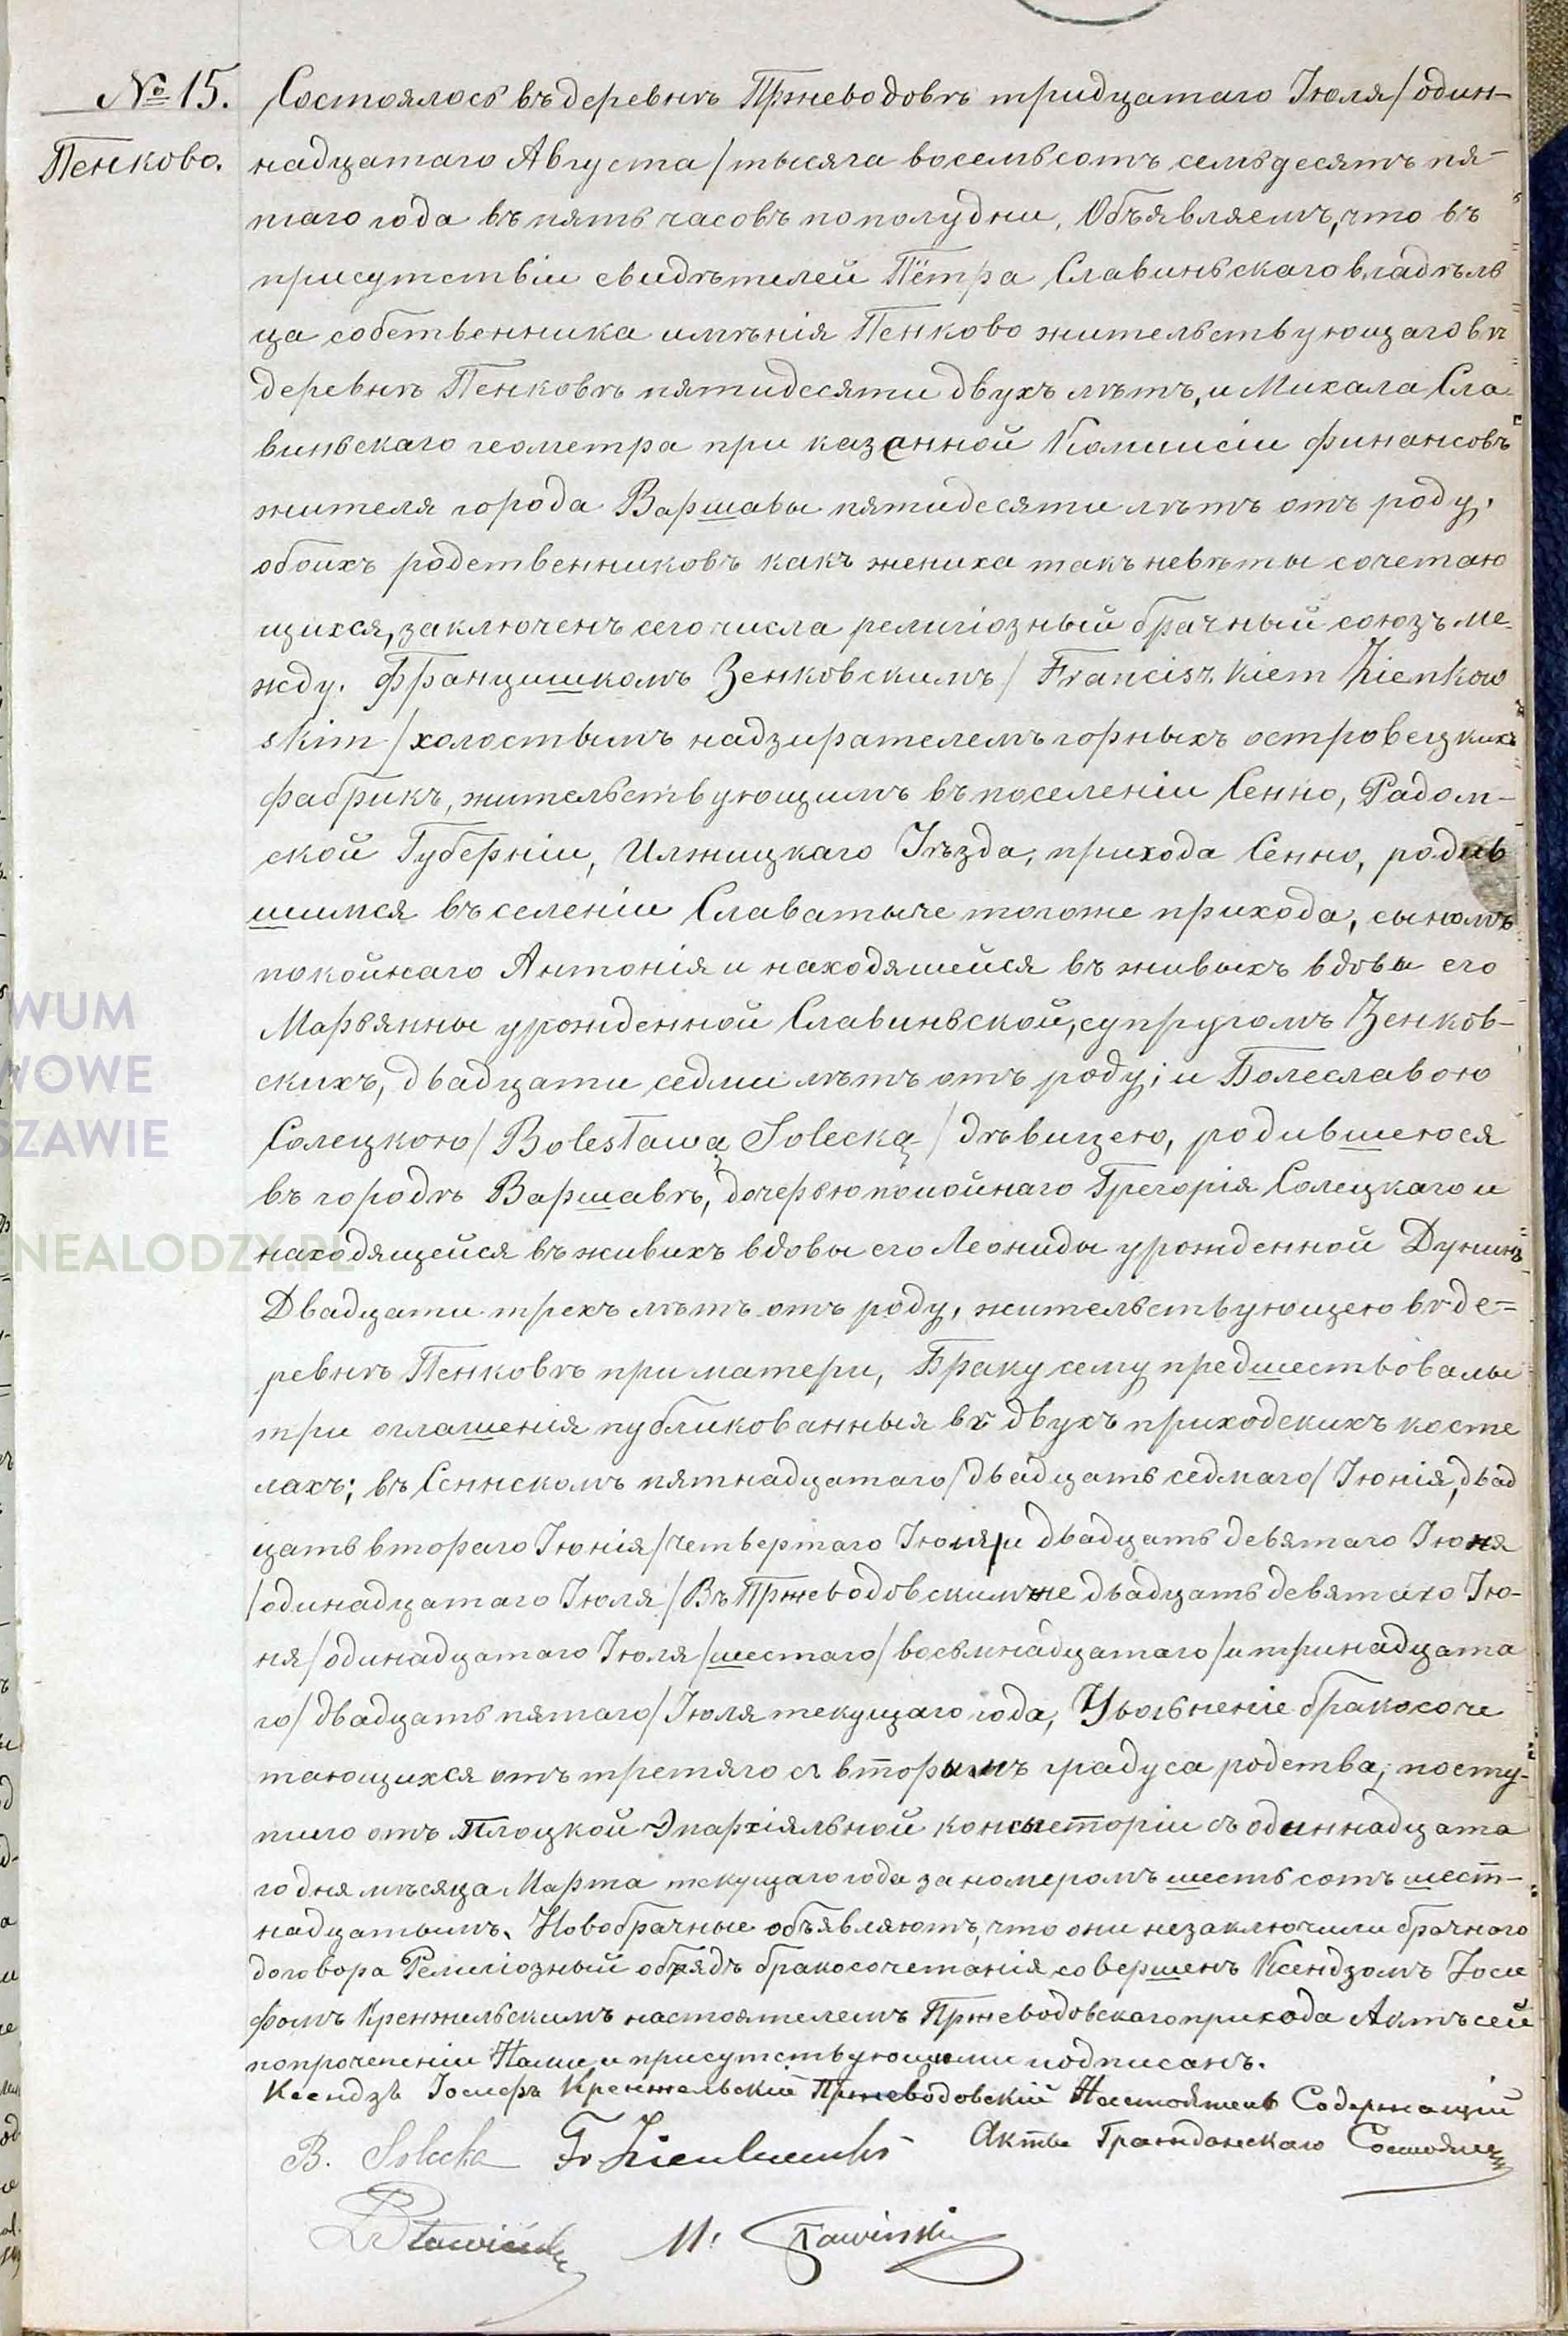 № 15.
Пенково.
Состоялось въ деревнѣ Пржеводовѣ тридцатаго Іюля/один-
надцатаго Августа/тысяча восемьсотъ семьдесятъ пя-
таго года въ пять часовъ пополудни, Объявляемъ, что въ
присутствіи свидѣтелей Пётра Славиньскаго владѣль
ца собственника имѣнія Пенково жительствующаго въ
деревнѣ Пенковѣ пятидесяти двухъ лѣтъ, и Михала Сла-
виньскаго геометра при казенной Коммисіи финансовъ
жителя города Варшавы пятидесяти лѣтъ отъ роду,
обоихъ родственниковъ какъ жениха такъ невѣты сочетаю
щихся, заключенъ сего числа религіозный брачный союзъ ме-
жду. Францишкомъ Зенковскимъ/ Franciszkiem Zienkow
skim/холостымъ надзирателемъ горныхъ островецкихъ
фабрикъ, жительствующимъ въ поселеніи Сенно, Радом-
ской Губерніи, Илжицкаго Уѣзда, прихода Сенно, родив
шимся въ селеніи Славатыче тогоже прихода, сыномъ
покойнаго Антонія и находяшейся въ живыхъ вдовы его
Марьянны урожденной Славиньской, супруговъ Зенков-
скихъ, двадцати седми лѣтъ отъ роду; и Болеславою
Солецкою/ Bolesławą Solecką/дѣвицею, родившеюся
въ городѣ Варшавѣ, дочерью покойнаго Грегорія Солецкаго и
находящейся въ живихъ вдовы его Леониды урожденной Дунинъ
Двадцати трехъ лѣтъ отъ роду, жительствующею въ де=
ревнѣ Пенковѣ при матери, Браку сему предшествовалы
три оглашенія публикованныя въ двухъ приходскихъ косте
лахъ; въ Сеннскомъ пятнадцатаго/двадцать седмаго/Іюнія, двад
цать втораго Іюнія/четвертаго Іюля/и двадцать девятаго Іюня
/одинадцатаго Іюля/Въ Пржеводовскимъ же двадцать девятаго Ію-
ня/одинадцатаго Іюля/шестаго/восьмнадцатаго/и тринадцата
го/двадцать пятаго/Іюля текущаго года, Увольненіе бракосоче
тающихся отъ третяго съ вторымъ градуса родства, посту-
пило отъ Плоцкой Эпархіяльной консысторіи съ одиннадцата
го дня мѣсяца Марта текущаго года за номеромъ шесть сотъ шест-
надцатымъ. Новобрачные объявляютъ, что они незаключили брачного
договора Религіозный обрядъ бракосочетанія совершенъ Ксендзомъ Іосе
фомъ Кренжельскимъ настоятелемъ Пржеводовскаго прихода Актъ сей
по прочтеніи Нами и присутствующими подписанъ.
Ксендзъ Іосифъ Кренжельскій Пржеводовскій Настоятель Содержащій
Акты Гражданскаго Состоянія
B. Solecka Fr Zienkowski
P Sławiński M. Sławiński